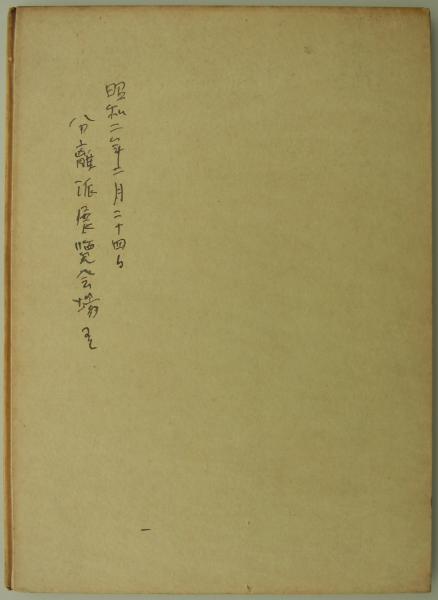 昭和二年二月二十四日
分離派展覧会場